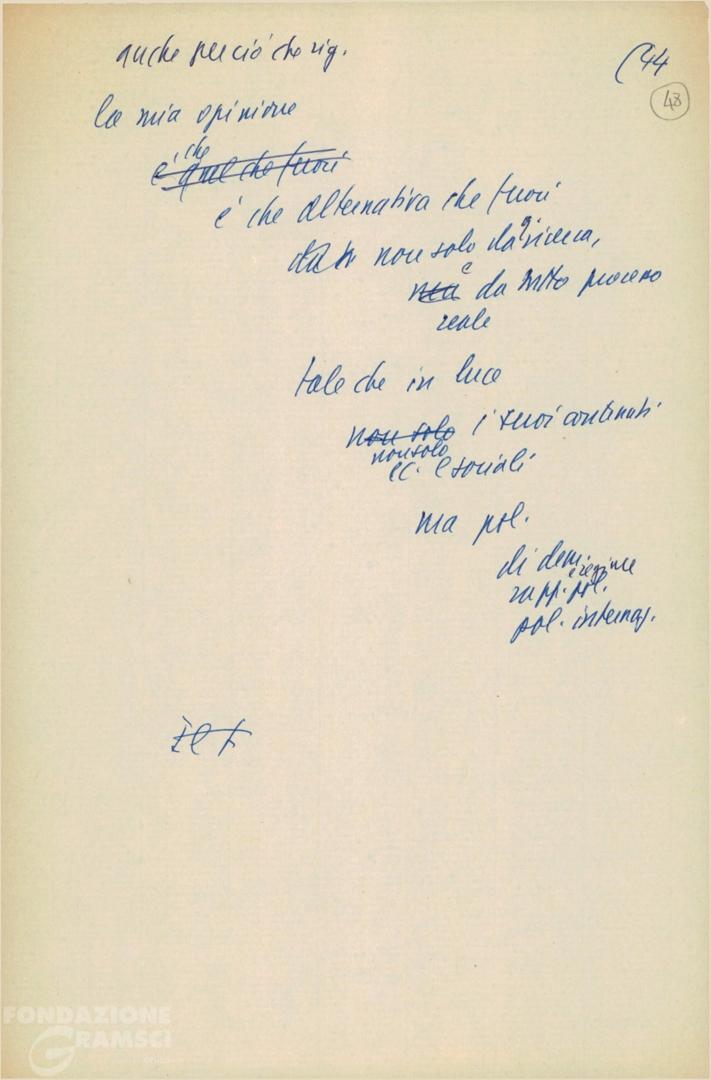 anche per ciò che rig.
(44
48
la mia opinione
è che
è che alternativa che fuori
non solo da ricerca,
e da tutto processo
reale
tale che in luce
i suoi continuati
non solo
ec. e sociali
ma pol.
di dem.
e regime
rapp. pol.
pol. internaz.
FONDAZIONE
GRAMSCI